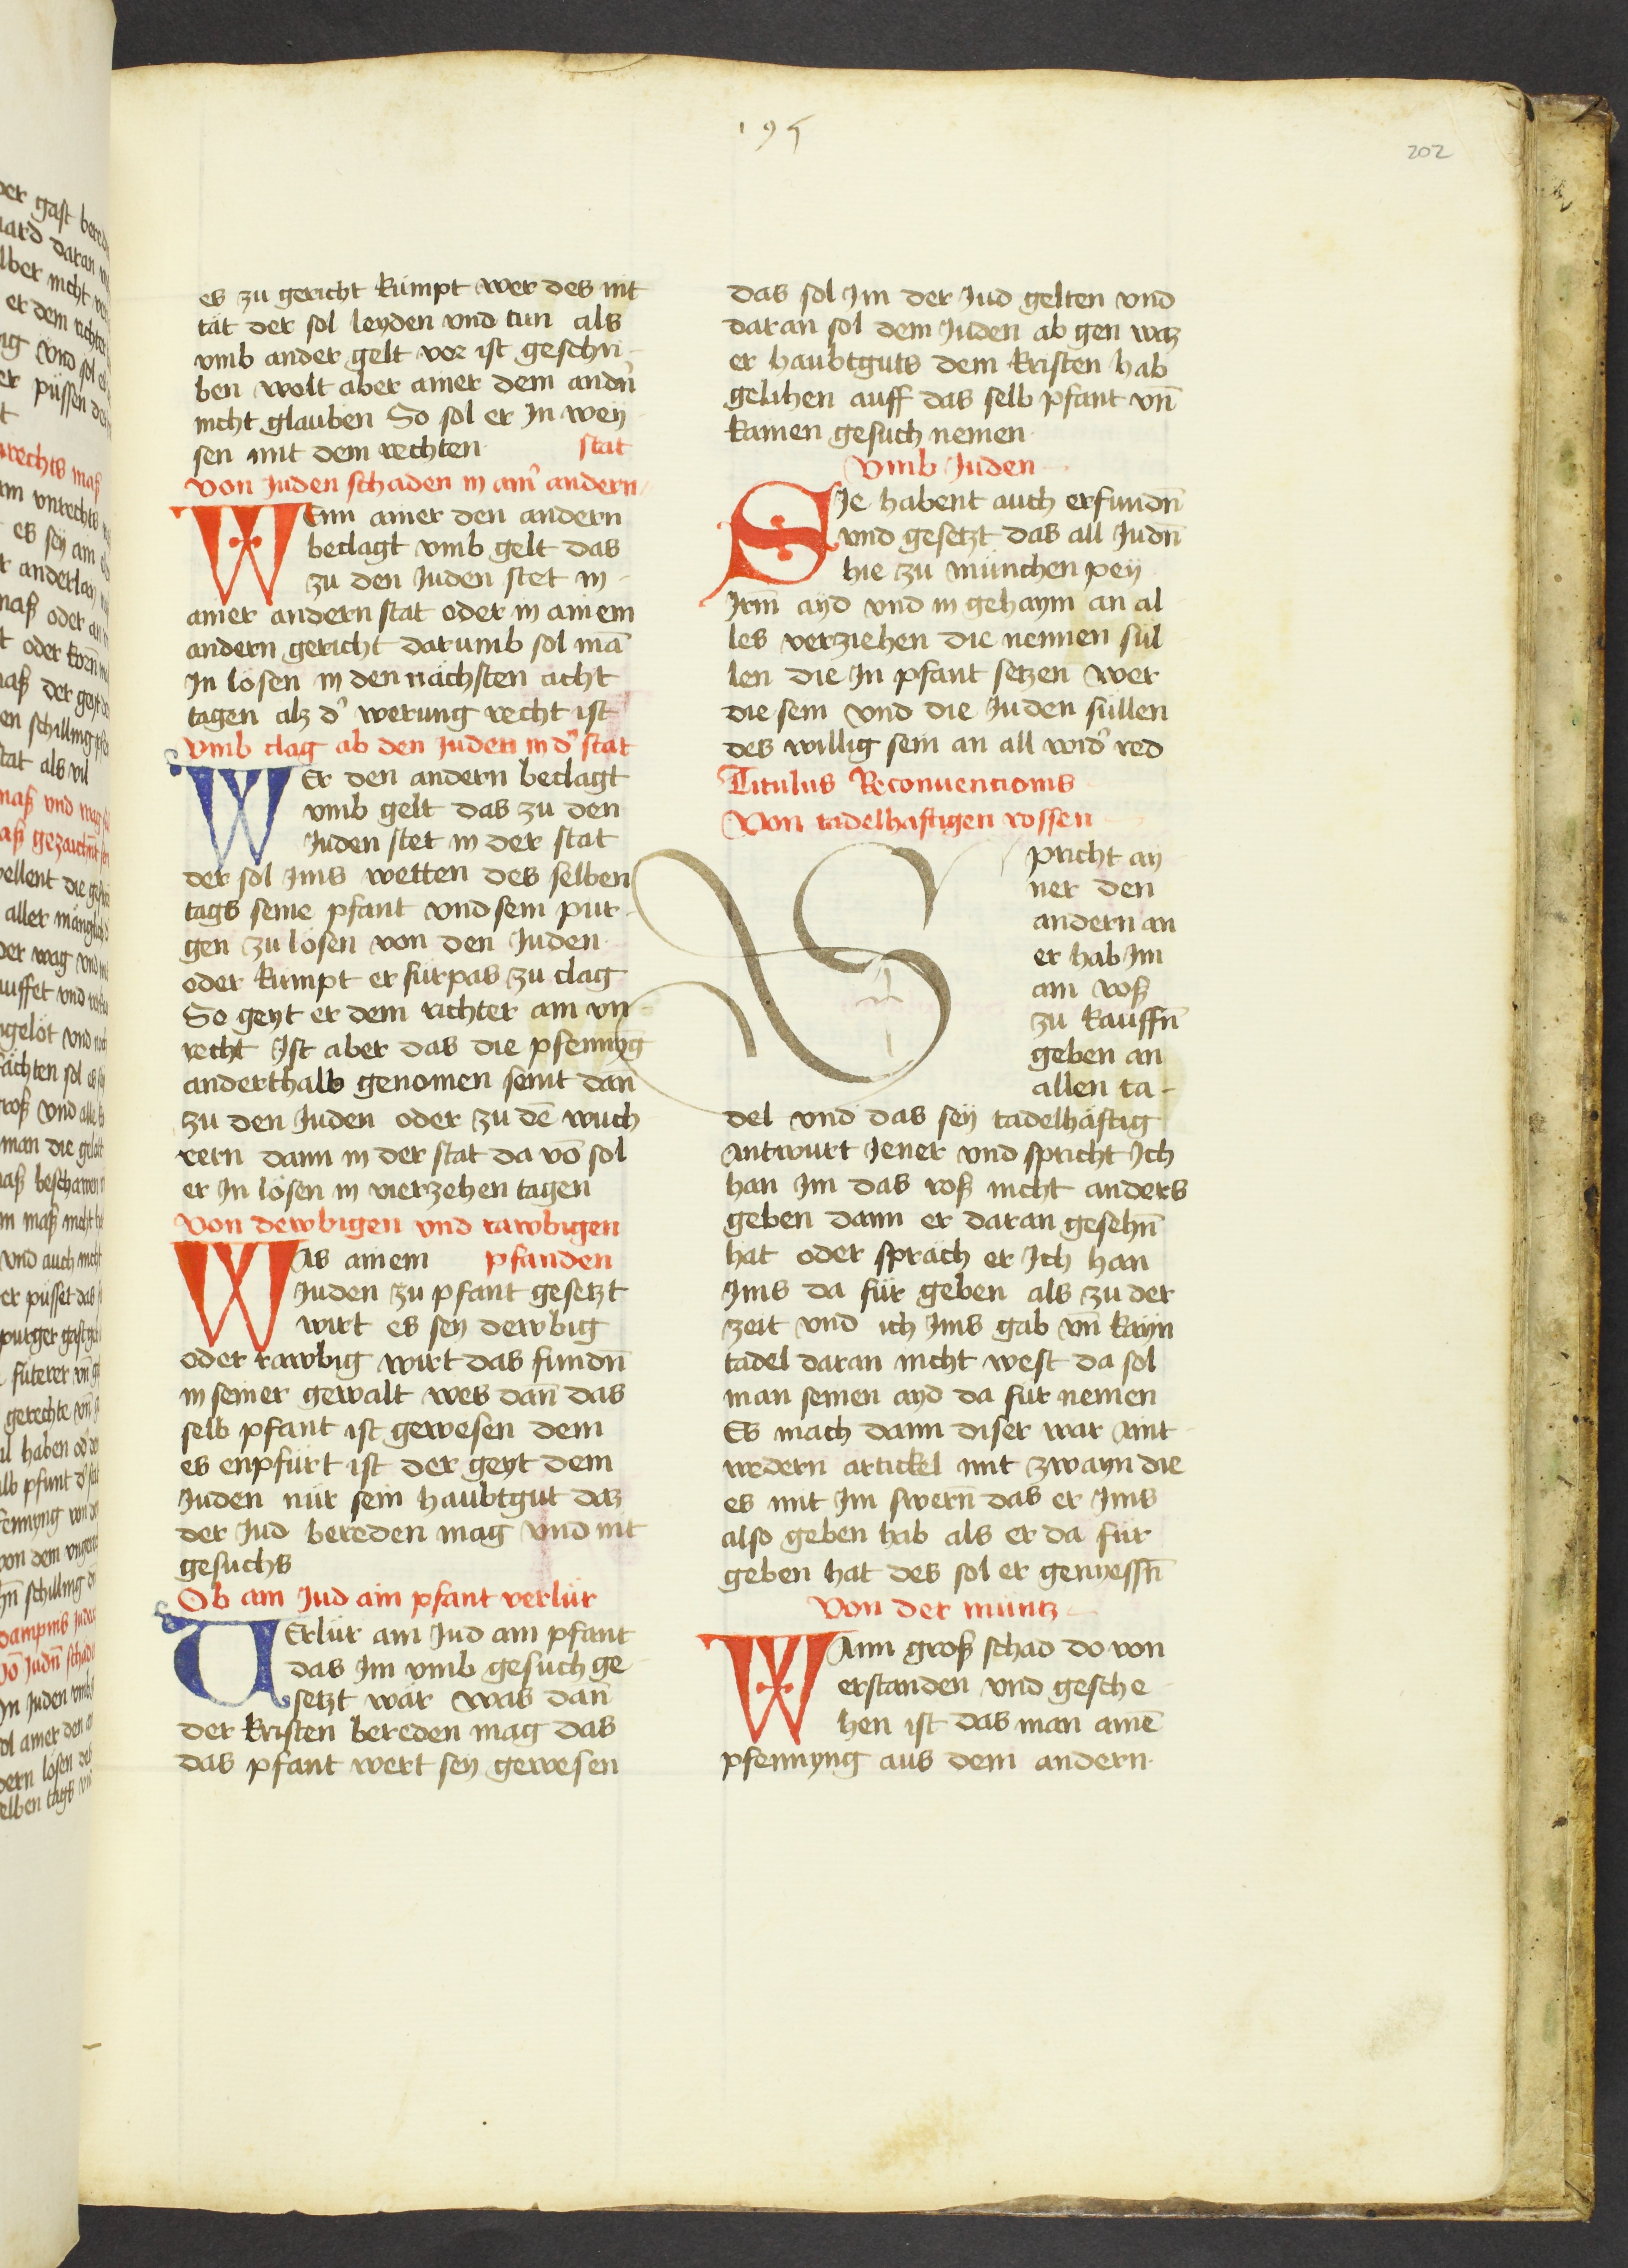 195
202
es zu gericht kümpt wer des nit
tät der sol leyden vnd tun als
vmb ander gelt vor ist geschri-
ben wolt aber ainer dem andn̄
nicht glauben So sol er In wey
sen mit dem rechten stat
Von Juden schaden in ain̄ andern
WEnn ainer den andern
beclagt vmb gelt das
zu den Juden stet in
ainer andern stat oder in ainem
andern gericht darumb sol mā
In lösen in den nächsten acht
tagen alz d' werung recht ist
Vmb clag ab den Juden in d' stat
WEr den andern beclagt
vmb gelt das zu den
Juden stet in der stat
der sol Ims wetten des selben
tags seine pfant vnd sein pur-
gen zu lösen von den Juden
oder kumpt er fürpas zu clag
So geyt er dem richter ain vn-
recht Ist aber das die pfennyng
anderthalb genomen seint dān
zu den Juden oder zu dē wuch
rern dann in der stat da vō sol
er In lösen in vierzehen tagen
Von dewbigen vnd rawbigen
WAs ainem pfanden
Juden zu pfant gesetzt
wirt es sey dewbig
oder rawbig wirt das fundn̄
in seiner gewalt wes dan̄ das
selb pfant ist gewesen dem
es enpfürt ist der geyt dem
Juden nür sein haubtgut daz
der Jud bereden mag vnd nit
gesuchs
Ob ain Jud ain pfant verlür
VErlür ain Jud ain pfant
das Im vmb gesuch ge
setzt wär was dan̄
der kristen bereden mag das
das pfant wert sey gewesen
das sol Im der Jud gelten vnd
daran sol dem Juden ab gen waz
er haubtguts dem kristen hab
gelihen auff das selb pfant vn̄
kainen gesuch nemen
Vmb Juden
SIe habent auch erfundn̄
vnd gesetzt das all Judn̄
hie zu münchen pey
Irm̄ ayd vnd in gehaym an al
les verziehen die nennen sül
len die In pfant setzen wer
die sein vnd die Juden süllen
des willig sein an all wid' red
Titulus Reconuencionis
Von tadelhaftigen rossen
SPricht ay
ner den
andern an
er hab Im
ain roß
zu kauffn̄
geben an
allen ta-
del vnd das sey tadelhäftig
Antwurt Jener vnd spricht Ich
han Im das roß nicht anders
geben dann er daran gesehn̄
hat oder spräch er Ich han
Ims da für geben als zu der
zeit vnd ich Ims gab vn̄ kayn
tadel daran nicht west da sol
man seinen ayd da für nemen
Es mach dann diser war Ant-
wedern artickel mit zwayn die
es mit Im swern̄ das er Ims
also geben hab als er da für
geben hat des sol er genyessn̄
Von der müntz
WAnn groß schad do von
erstanden vnd gesche
hen ist das man ainē
pfennyng aus dem andern